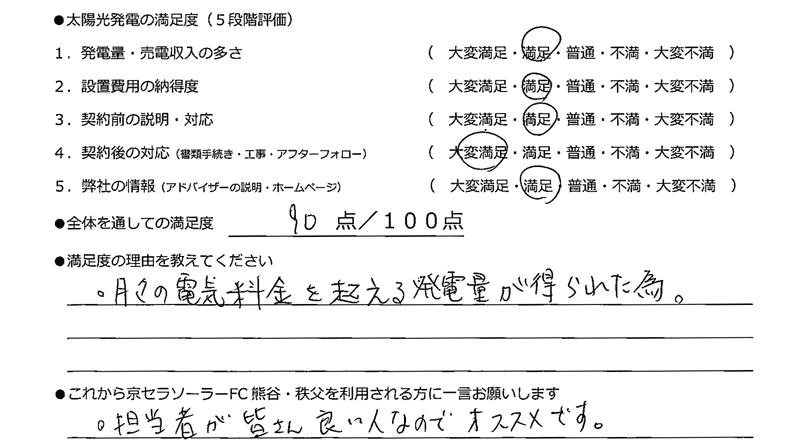 ●太陽光発電の満足度（５段階評価）
１．発電量・売電収入の多さ （ 大変満足・満足・普通・不満・大変不満 ）
２．設置費用の納得度 （ 大変満足・満足・普通・不満・大変不満 ）
３．契約前の説明・対応 （ 大変満足・満足・普通・不満・大変不満 ）
４．契約後の対応（書類手続き・工事・アフターフォロー） （ 大変満足・満足・普通・不満・大変不満 ）
５．弊社の情報（アドバイザーの説明・ホームページ） （ 大変満足・満足・普通・不満・大変不満 ）
●全体を通しての満足度 90 点／１００点
●満足度の理由を教えてください
。月々の電気料金を超える発電量が得られた為。
●これから京セラソーラーFC熊谷・秩父を利用される方に一言お願いします
。担当者が皆さん良い人なのでオススメです。